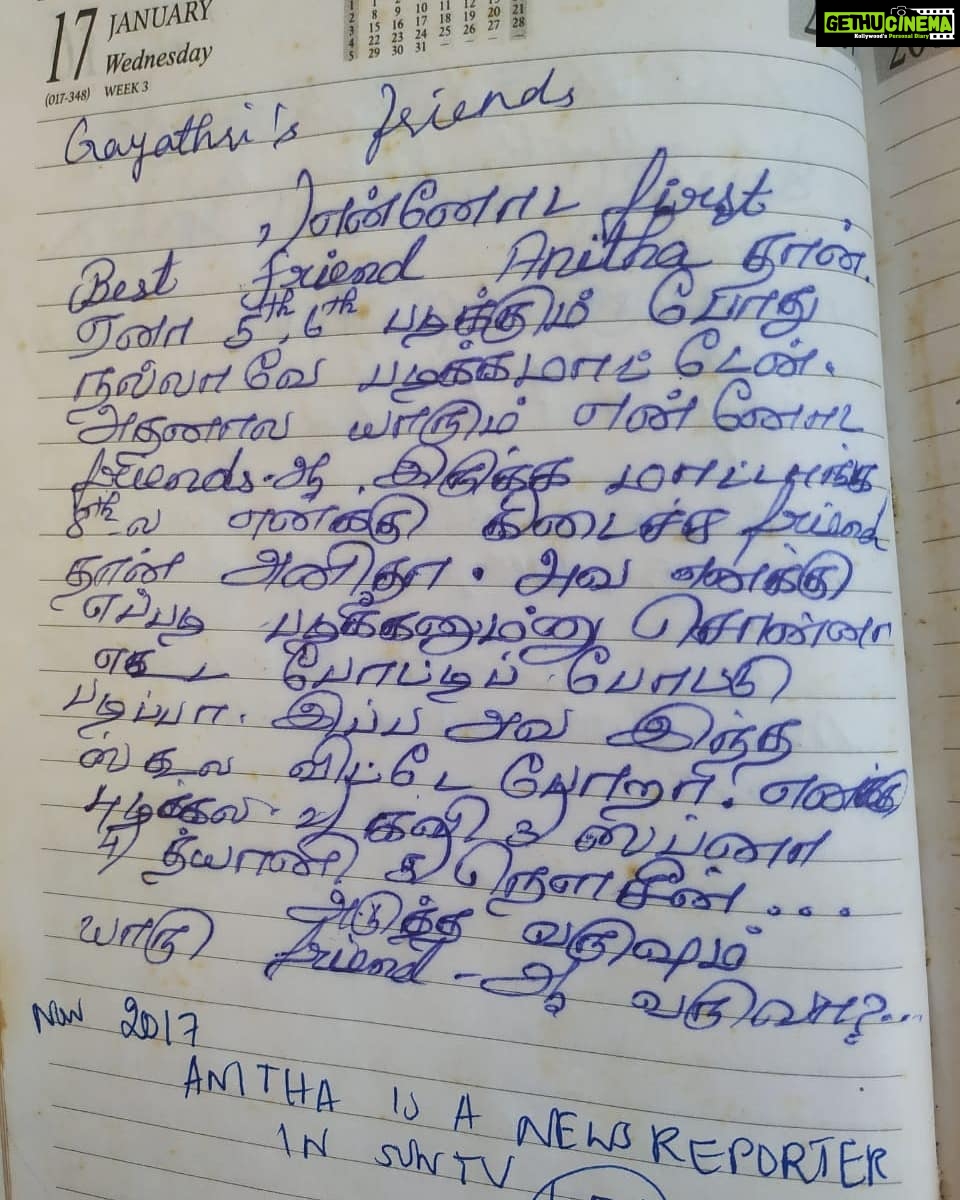 GETHU CINEMA
Kollywood's Personal Diary
17 JANUARY
Wednesday
(017-348) WEEK 3
1 1
2 8 9 10 11 12 21
3 15 16 17 18 19 20 28
4 22 23 24 25 26 27 –
5 29 30 31 – – – –
Gayathri's friends
1) என்னோட first
Best friend Anitha தான்.
ஏனா 5th, 6th படிக்கும் போது
நல்லாவே படிக்கமாட்டேன்.
அதனால யாரும் என்னோட
friends-ஆ இருக்க மாட்டாங்க
8th ல எனக்கு கிடைச்ச friend
தான் அனிதா. அவ எனக்கு
எப்படி படிக்கனும்னு சொன்னா
போட்டிப் போட்டு
படிப்பா. இப்ப அவ இந்த
ஸ்கூல விட்டே போறா. எனக்கு
புடிக்கல. 2) கவி 3) ஸ்வப்னா
4) த்யானி 5) நௌசீன்...
அடுத்த வருஷம்
யாரு friend-ஆ வருவா?...
Now 2017
ANITHA IS A NEWS REPORTER
IN SUN TV